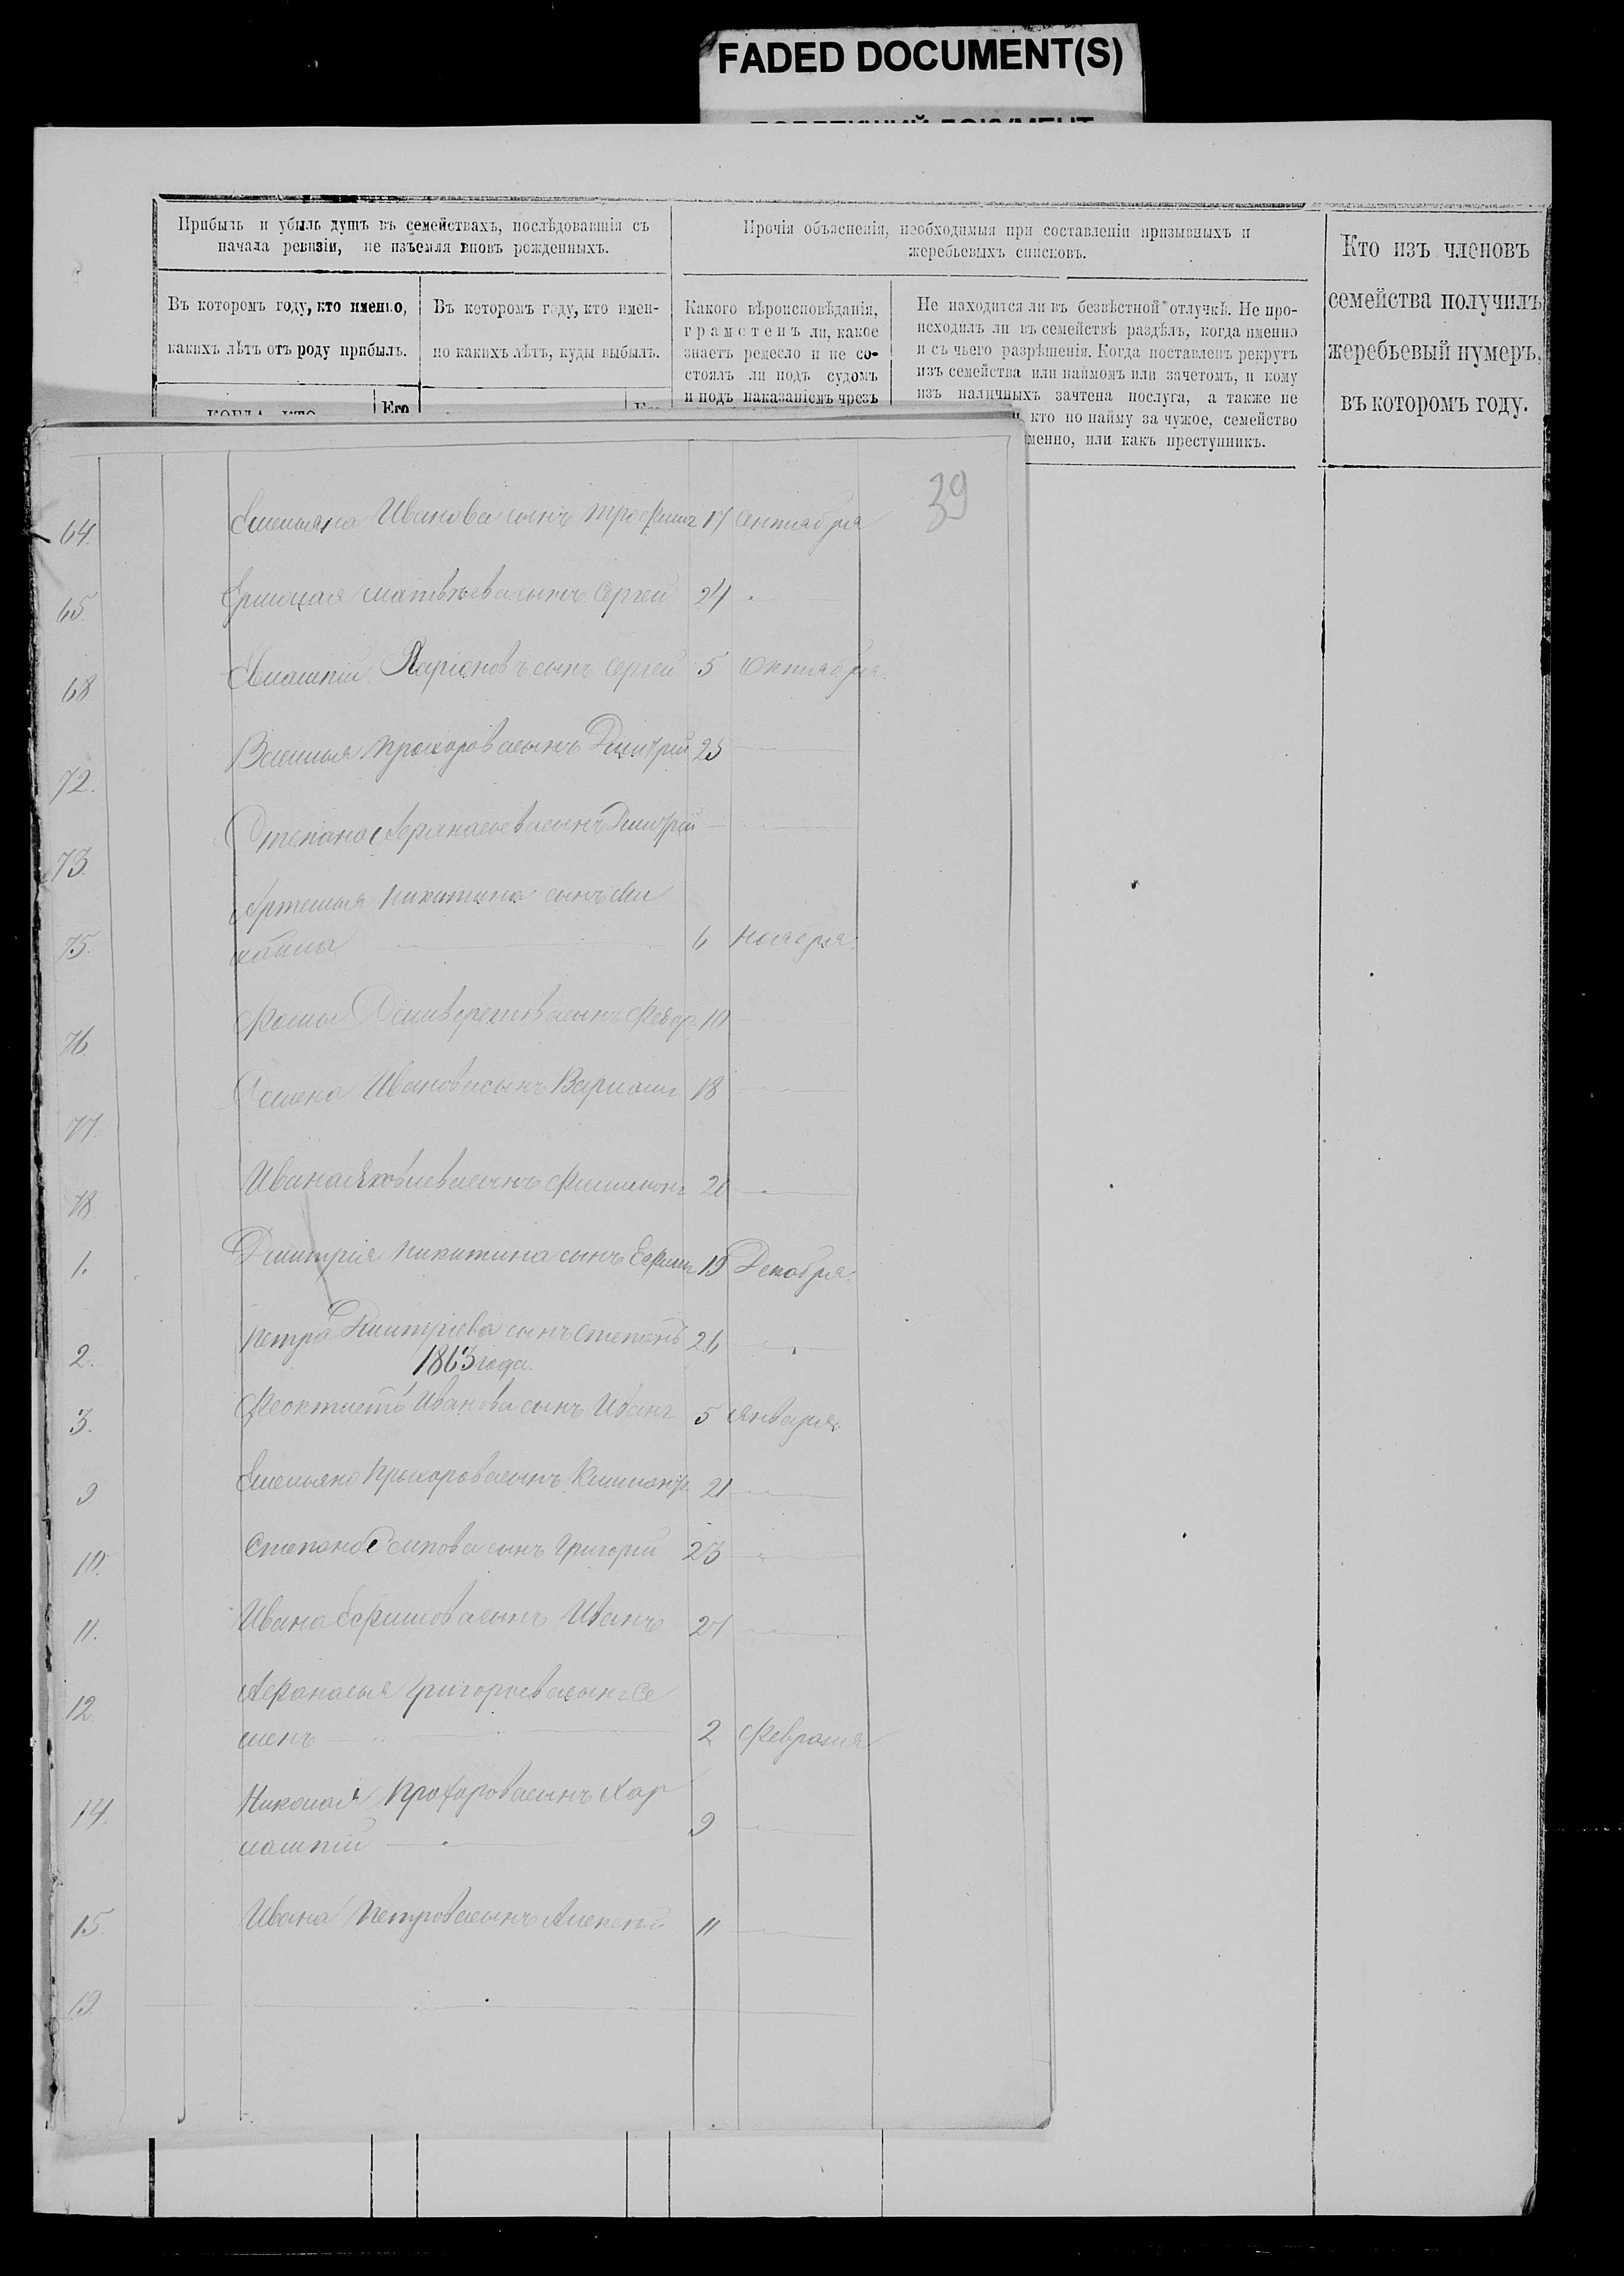 FADED DOCUMENT(S)
Прибыль и убыль душъ въ семействахъ, послѣдовавшія съ
начала ревизіи, не изъемля вновь рожденныхъ.
Прочія объясненія, необходимыя при составленіи призывныхъ и
жеребьевыхъ списковъ.
Въ которомъ году, кто именно,
какихъ лѣтъ отъ роду прибылъ.
Въ которомъ году, кто имен-
но какихъ лѣтъ, куды выбылъ.
Какого вѣроисповѣданія,
грамотенъ ли, какое
знаетъ ремесло и не со-
стоялъ ли подъ судомъ
и подъ наказаніемъ чрезъ
Не находится ли въ безвѣстной отлучкѣ. Не про-
исходилъ ли въ семействѣ раздѣлъ, когда именно
и съ чьего разрѣшенія. Когда поставленъ рекрутъ
изъ семейства или наймомъ или зачетомъ, и кому
изъ наличныхъ зачтена послуга, а также не
кто по найму за чужое, семейство
менно, или какъ преступникъ.
Кто изъ членовъ
семейства получилъ
жеребьевый нумеръ,
въ которомъ году.
39
64. Емельяна Иванова сынъ Трофимъ 17 Сентября
65. Матвѣева сынъ Сергей 24
68 Ларіоновъ сынъ Сергей 5 Октября.
72. Василья Прохорова сынъ Дмитрій 25
73. Степана Афанасьева сынъ Дмитрій
Артемья Никитина сынъ Ми
75. хайла 6 Ноября.
76 Фомы сынъ Федор 10
77. Семена Иванова сынъ Варлам 18
78. Ивана Яковлева сынъ Филимонъ 20
1. Дмитрія Никитина сынъ Ефимъ 19 Декабря.
2. Петра Дмитріева сынъ Степанъ 26
1863 года.
3. Феоктиста Иванова сынъ Иванъ 5 Января.
9 Емельяна Прохорова сынъ 21
10. Степана Осипова сынъ Григорій 23
11. Ивана Ефимова сынъ Иванъ 27
12. Афанасья Григорьева сынъ Се
менъ 2 Февраля
14. Николая Прохорова сынъ Хар
лампій 9
15. Ивана Петрова сынъ Алексѣй 11
19